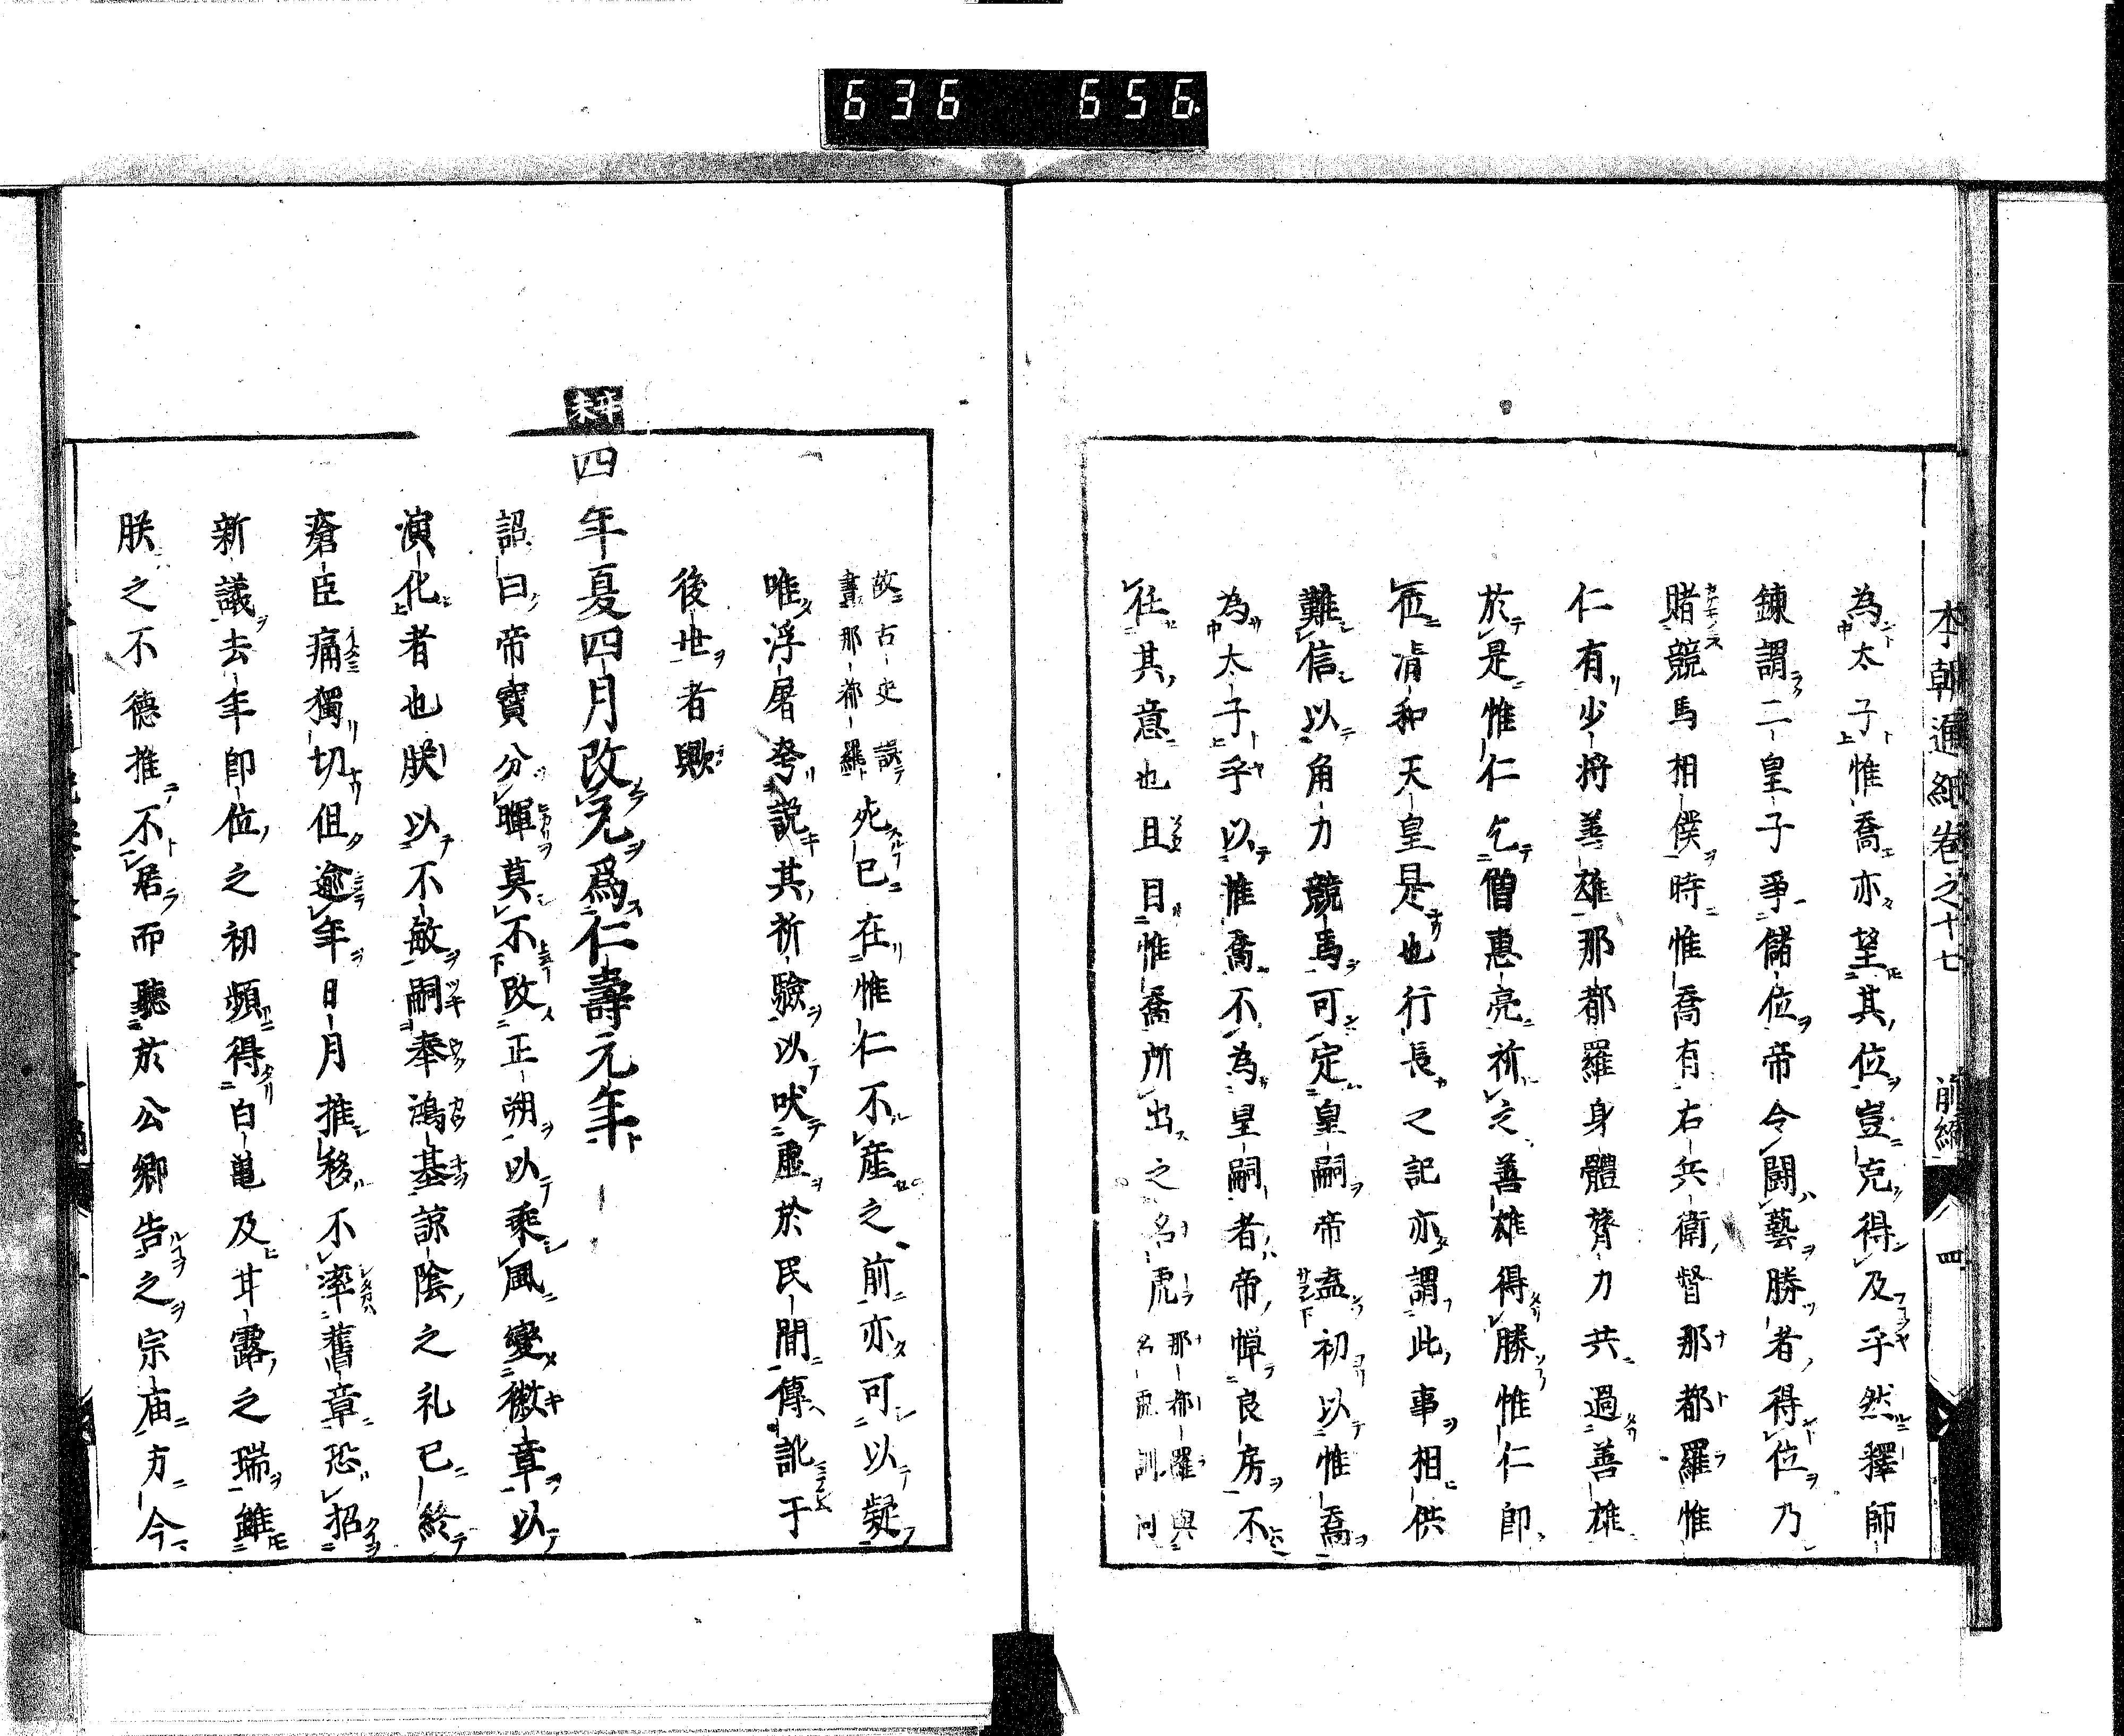 636 656
本朝通紀卷之十七 前編 四
為太子惟喬亦望其位豈克得及乎然釋師
鍊謂二皇子爭儲位帝令鬪藝勝者得位乃
賭競馬相僕時惟喬有右兵衛督那都羅惟
仁有少將善雄那都羅身體膂力共過善雄
於是惟仁乞僧惠亮祈之善雄得勝惟仁即
位清和天皇是也行長之記亦謂此事相供
難信以角力競馬可定皇嗣帝盍初以惟喬
為太子乎以惟喬不為皇嗣者帝憚良房不
任其意也且目惟喬所出之名虎 那都羅與名虎訓同
故古史誤書那都羅 死已在惟仁不産之前亦可以凝
唯浮屠夸説其祈驗以吠虛於民間傳訛于
後世者歟
辛未 四年夏四月改元爲仁壽元年
詔曰帝寶分暉莫不改正朔以乘風變徽章以
演化者也朕以不敏嗣奉鴻基諒陰之礼已終
瘡臣痛獨切但逾年日月推移不率舊章恐招
新議去年即位之初頻得白亀及甘露之瑞雖
朕之不德推不居而聽於公卿告之宗庙方今